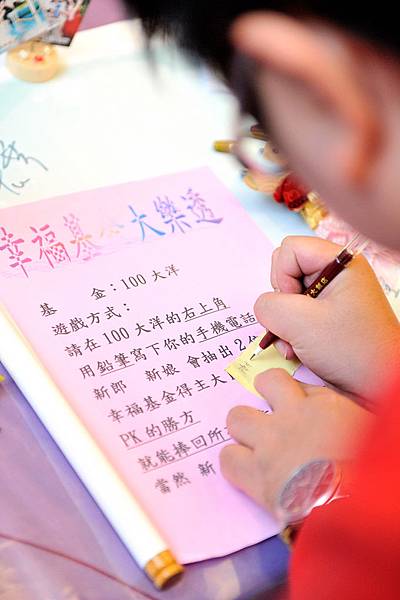 幸福基金大樂透
基　　金：100 大洋
遊戲方式：
請在 100 大洋的右上角
用鉛筆寫下你的手機電話
新郎　新娘 會抽出 2
幸福基金得主大
PK 的勝方
就能捧回所
當然 新